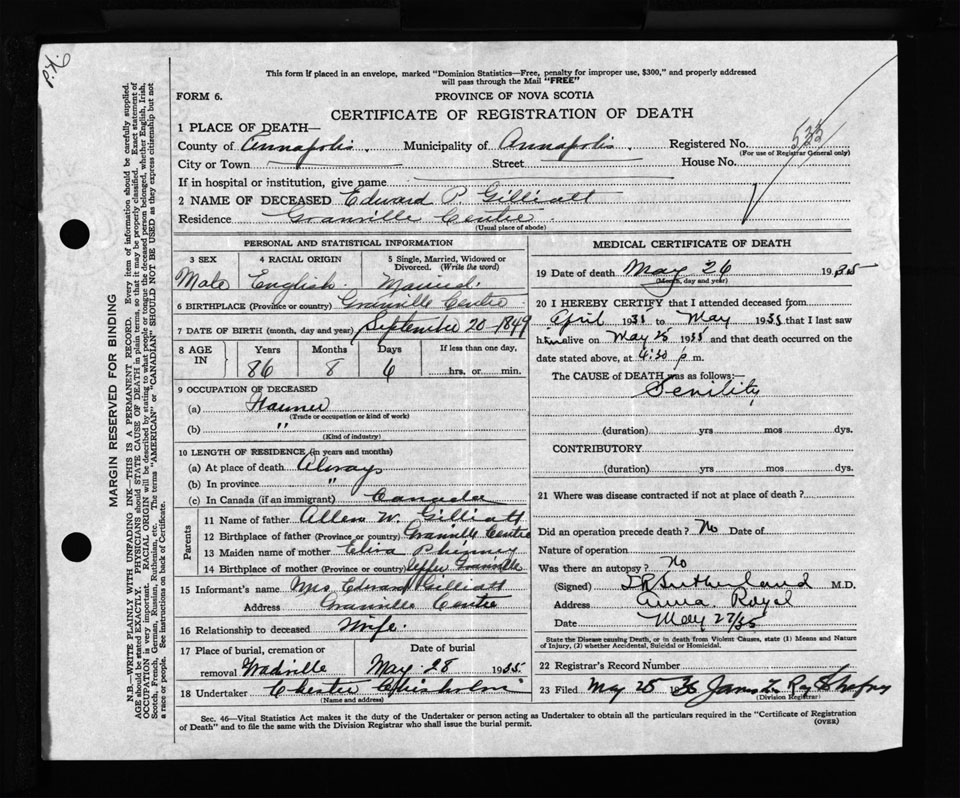 This form if placed in an envelope, marked "Dominion Statistics—Free, penalty for improper use, $300," and properly addressed
will pass through the Mail "FREE"
FORM 6.
PROVINCE OF NOVA SCOTIA
CERTIFICATE OF REGISTRATION OF DEATH
1 PLACE OF DEATH—
County of Annapolis. Municipality of Annapolis. Registered No. 533
(For use of Registrar General only)
City or Town Street House No.
If in hospital or institution, give name
2 NAME OF DECEASED Edward P. Gilliatt
Residence Granville Centre
(Usual place of abode)
PERSONAL AND STATISTICAL INFORMATION
3 SEX 4 RACIAL ORIGIN 5 Single, Married, Widowed or
Divorced. (Write the word)
Male English. Married.
6 BIRTHPLACE (Province or country) Granville Centre
7 DATE OF BIRTH (month, day and year) September 20-1849
8 AGE IN Years Months Days If less than one day,
86 8 6 hrs. or min.
9 OCCUPATION OF DECEASED
(a) Farmer
(Trade or occupation or kind of work)
(b) "
(Kind of industry)
10 LENGTH OF RESIDENCE (in years and months)
(a) At place of death Always
(b) In province "
(c) In Canada (if an immigrant) Canada
Parents
11 Name of father Allen W. Gilliatt
12 Birthplace of father (Province or country) Granville Centre
13 Maiden name of mother Eliza Phinney
14 Birthplace of mother (Province or country) Upper Granville
15 Informant's name Mrs Edward Gilliatt
Address Granville Centre
16 Relationship to deceased Wife.
17 Place of burial, cremation or Date of burial
removal May 28 1935
18 Undertaker Chester Chisholm
(Name and address)
MEDICAL CERTIFICATE OF DEATH
19 Date of death May 26 1935
(Month, day and year)
20 I HEREBY CERTIFY that I attended deceased from
April 1935 to May 1935 that I last saw
him alive on May 25 1935 and that death occurred on the
date stated above, at 4:30 p m.
The CAUSE of DEATH was as follows:—
Senility
(duration) yrs mos dys.
CONTRIBUTORY
(duration) yrs mos dys.
21 Where was disease contracted if not at place of death?
Did an operation precede death? No Date of
Nature of operation
Was there an autopsy? No
(Signed) Sutherland M.D.
Address Anna. Royal
Date May 27/35
State the Disease causing Death, or in death from Violent Causes, state (1) Means and Nature
of Injury, (2) whether Accidental, Suicidal or Homicidal.
22 Registrar's Record Number
23 Filed May 28 1935
(Division Registrar)
Sec. 46—Vital Statistics Act makes it the duty of the Undertaker or person acting as Undertaker to obtain all the particulars required in the "Certificate of Registration
of Death" and to file the same with the Division Registrar who shall issue the burial permit.
(OVER)
MARGIN RESERVED FOR BINDING
N.B. WRITE PLAINLY WITH UNFADING INK—THIS IS A PERMANENT RECORD. Every item of information should be carefully supplied.
AGE should be stated EXACTLY. PHYSICIANS should STATE CAUSE OF DEATH in plain terms, so that it may be properly classified. Exact statement of
OCCUPATION is very important. RACIAL ORIGIN will be described by stating to what people or tongue the deceased person belonged, whether English, Irish,
Scotch, French, German, Russian, Ruthenian, etc. The terms "AMERICAN" or "CANADIAN" SHOULD NOT BE USED as they express citizenship but not
a race or people. See instructions on back of Certificate.